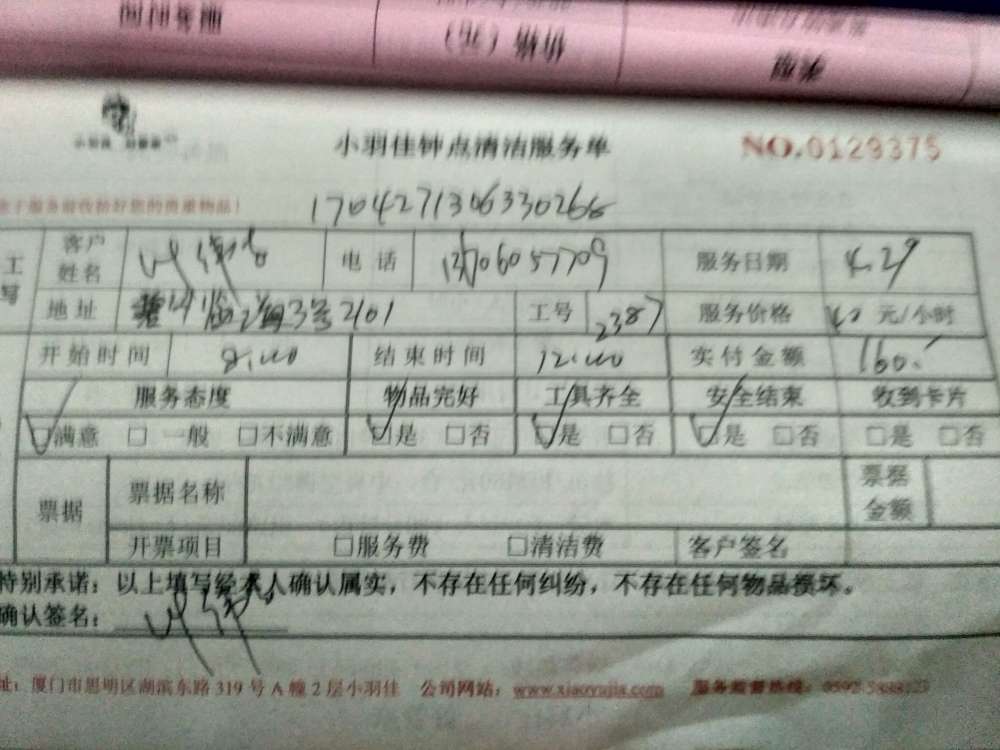 价格（元）
小羽佳钟点清洁服务单 NO.0129375
1704271306330266
客户姓名 电话 13706057709 服务日期 4.29
地址 2组3号2101 工号 2387 服务价格 40 元/小时
开始时间 8:00 结束时间 12:00 实付金额 160.
服务态度 物品完好 工具齐全 安全结束 收到卡片
满意 □ 一般 □不满意 □是 □否 □是 □否 □是 □否 □是 □否
票据 票据名称 票据金额
开票项目 □服务费 □清洁费 客户签名
特别承诺：以上填写经本人确认属实，不存在任何纠纷，不存在任何物品损坏。
确认签名：
址：厦门市思明区湖滨东路 319 号 A 幢 2 层小羽佳 公司网站：www.xiaoyujia.com 服务监督热线：